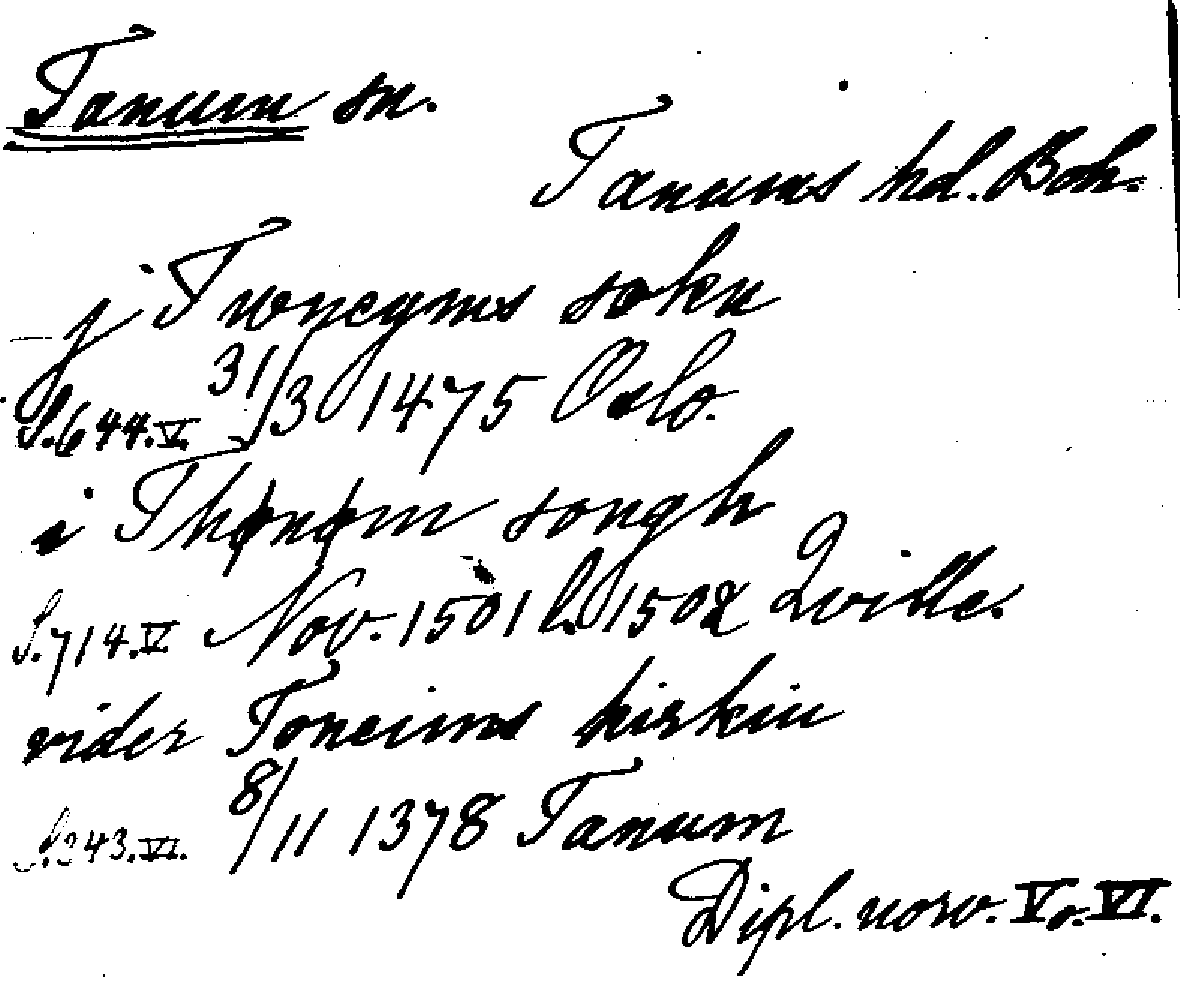 Tanum sn.
Tanums hd. Boh.
j Twneyms sokn
S. 644. V. 31/3 1475 Oslo.
i Thønøm songh
S. 714. V Nov. 1501 l. 1502 Qville.
vider Toneims kirkiu
S. 243. VI. 8/11 1378 Tanum
Dipl. norv. V o. VI.